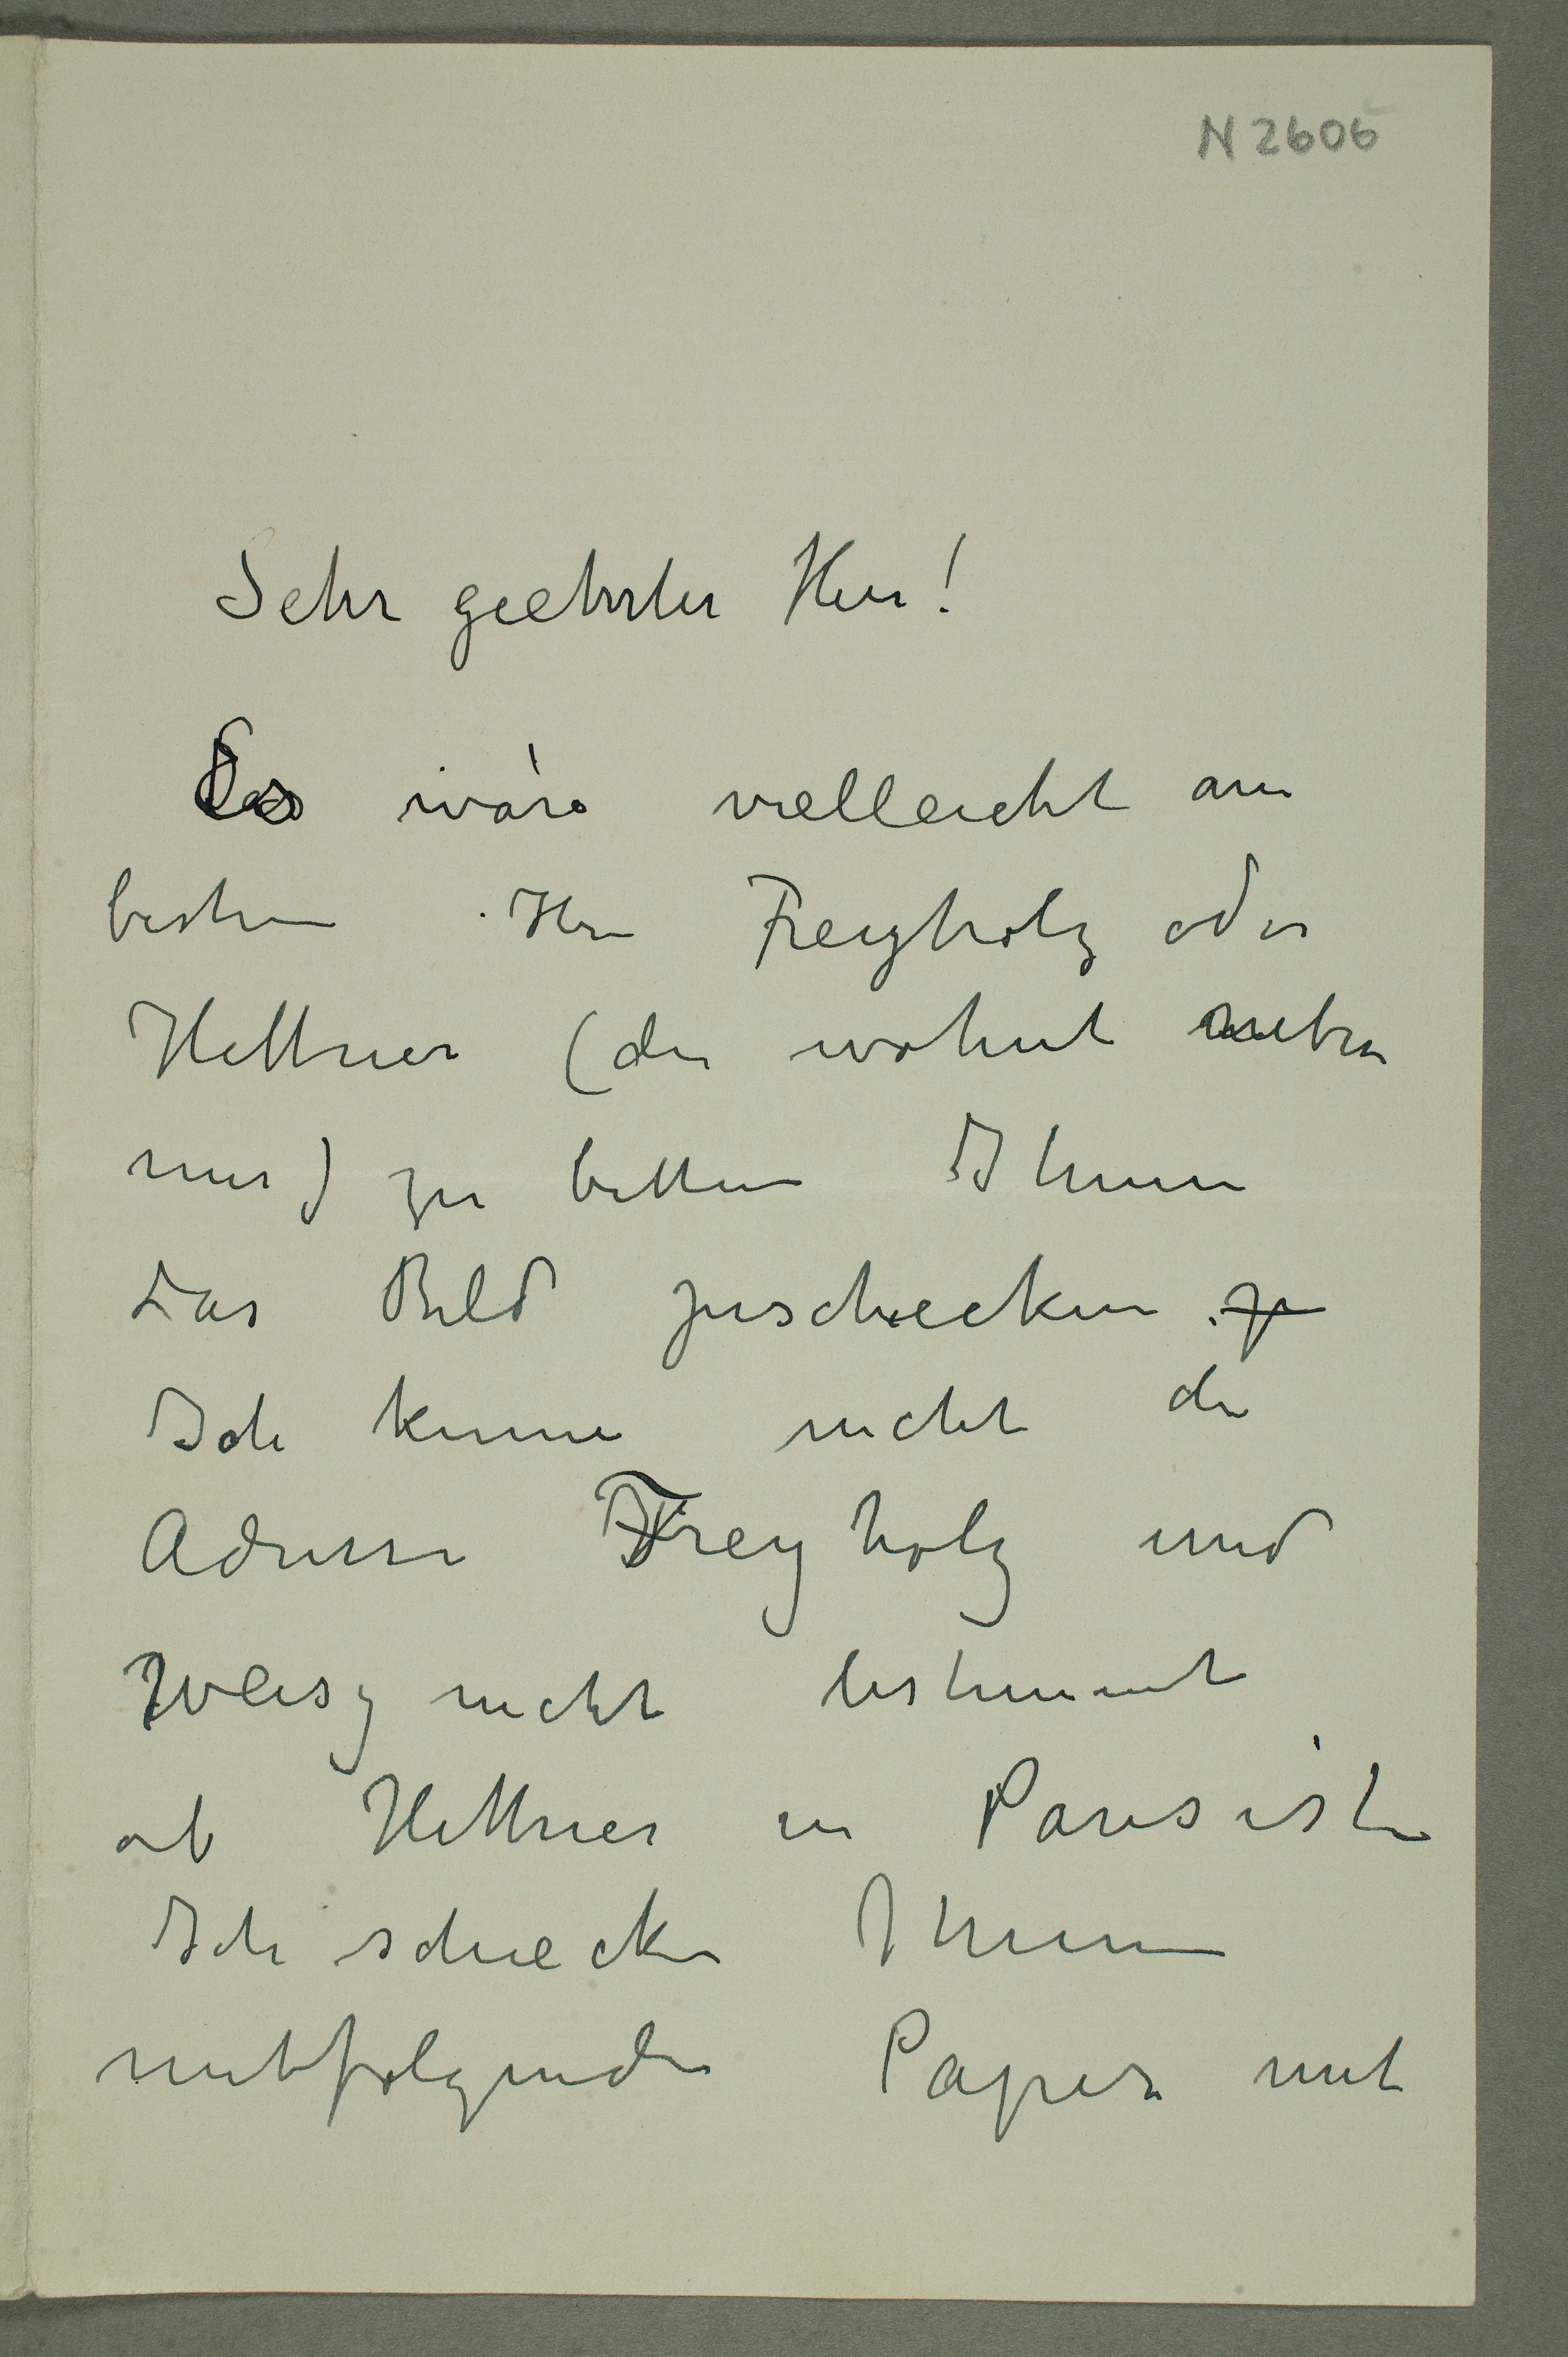 N 2606
Sehr geehrter Herr!
Es wäre vielleicht am
besten Hrn Freyholz oder
Hettner (der wohnt neben
mir) zu bitten Ihnen
das Bild zuschicken zu
Ich kenne nicht die
Adresse Freyholz und
weisz nicht bestimmt
ob Hettner in Paris ist
Ich schiecke Ihnen
mitfolgende Papier mit